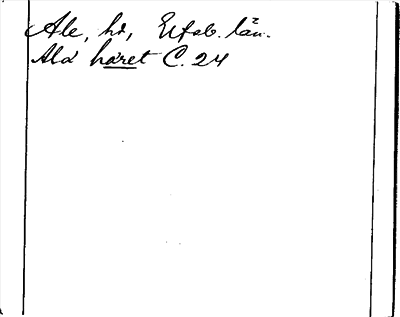 Ale, hd, Elfsb. län.
Ala häret C. 24